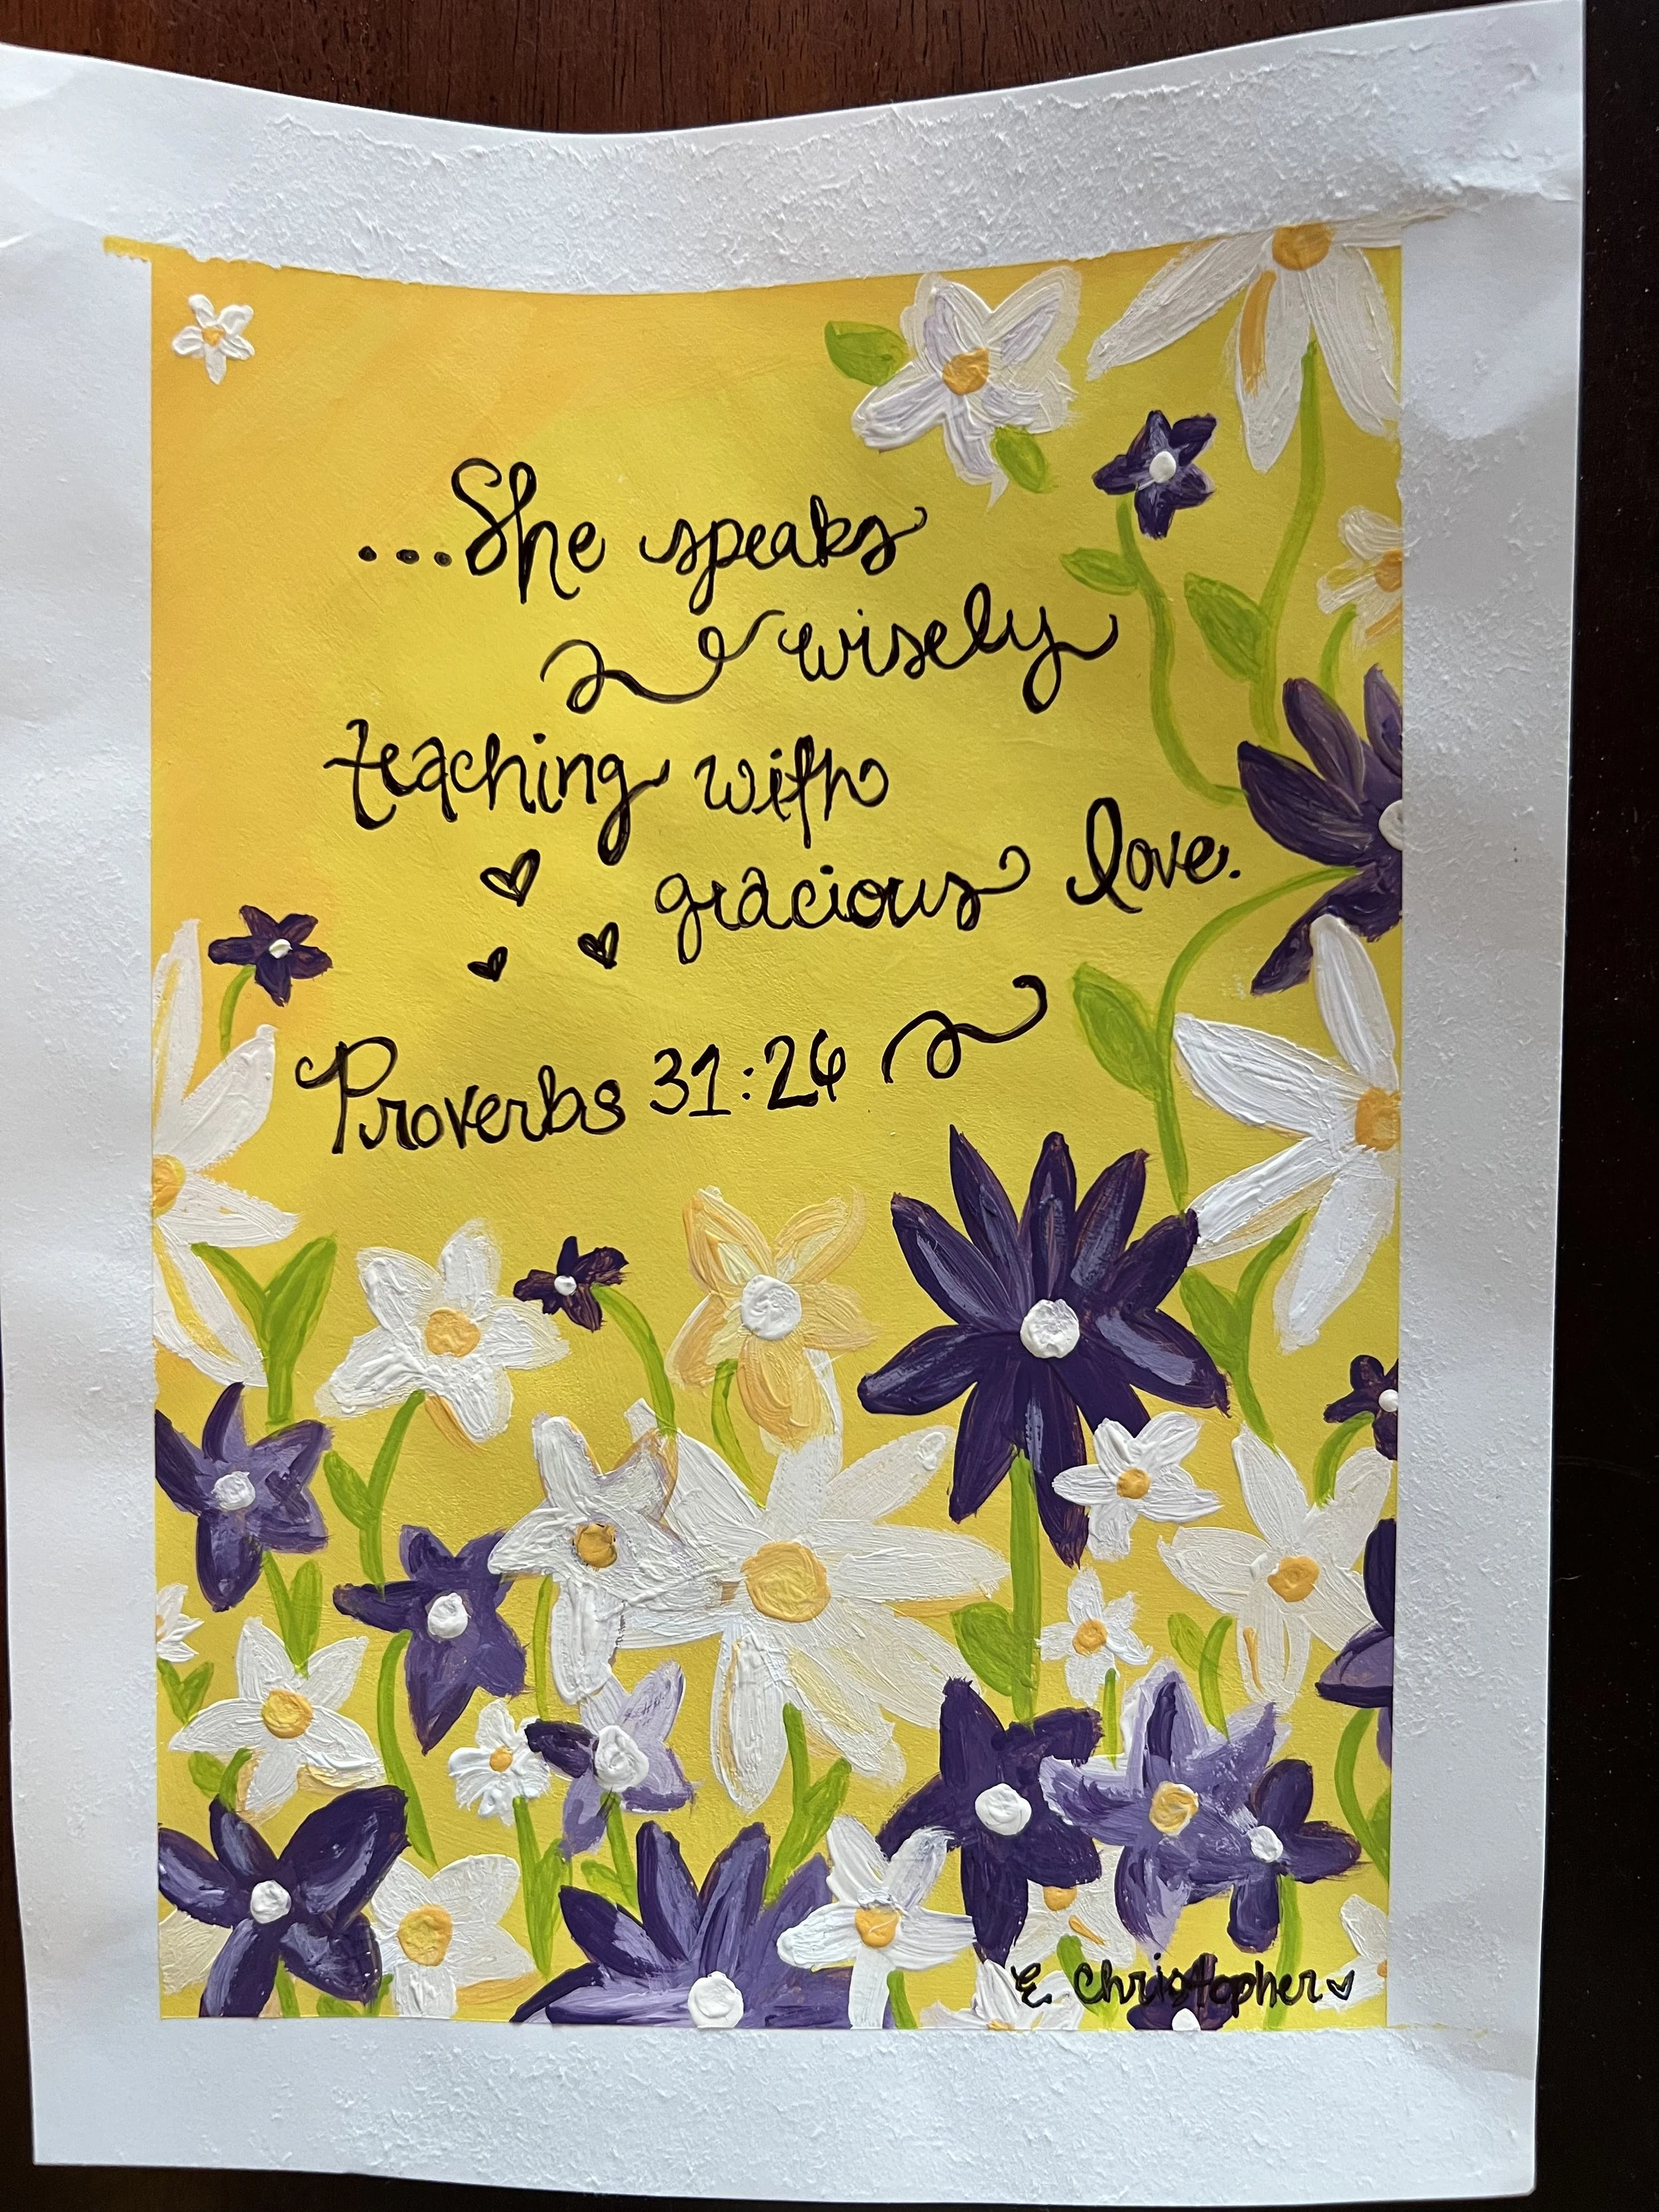 ...She speaks
wisely
teaching with
gracious love.
Proverbs 31:26
E Christopher